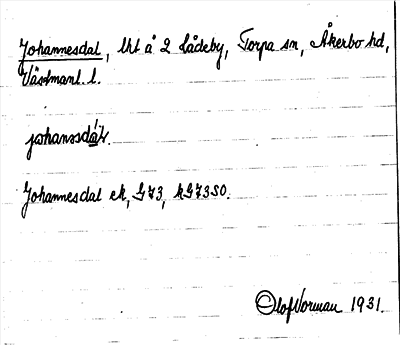 Johannesdal, lht å 2 Lådeby, Torpa sn, Åkerbo hd,
Västmanl. l.
johanssdáḷ.
Johannesdal ek, G73, kG73SO.
Olof Norman 1931.